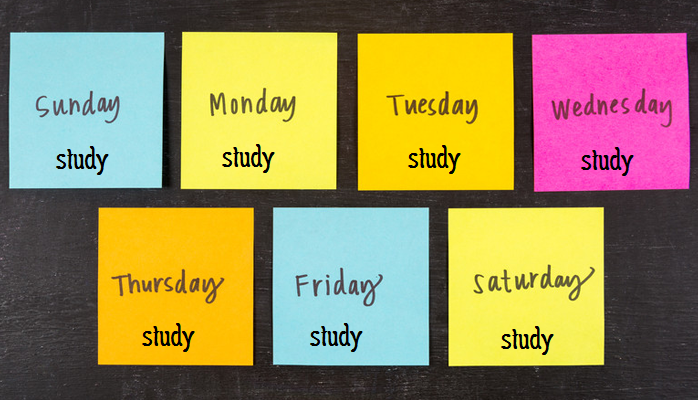 Sunday
study
Monday
study
Tuesday
study
Wednesday
study
Thursday
study
Friday
study
Saturday
study